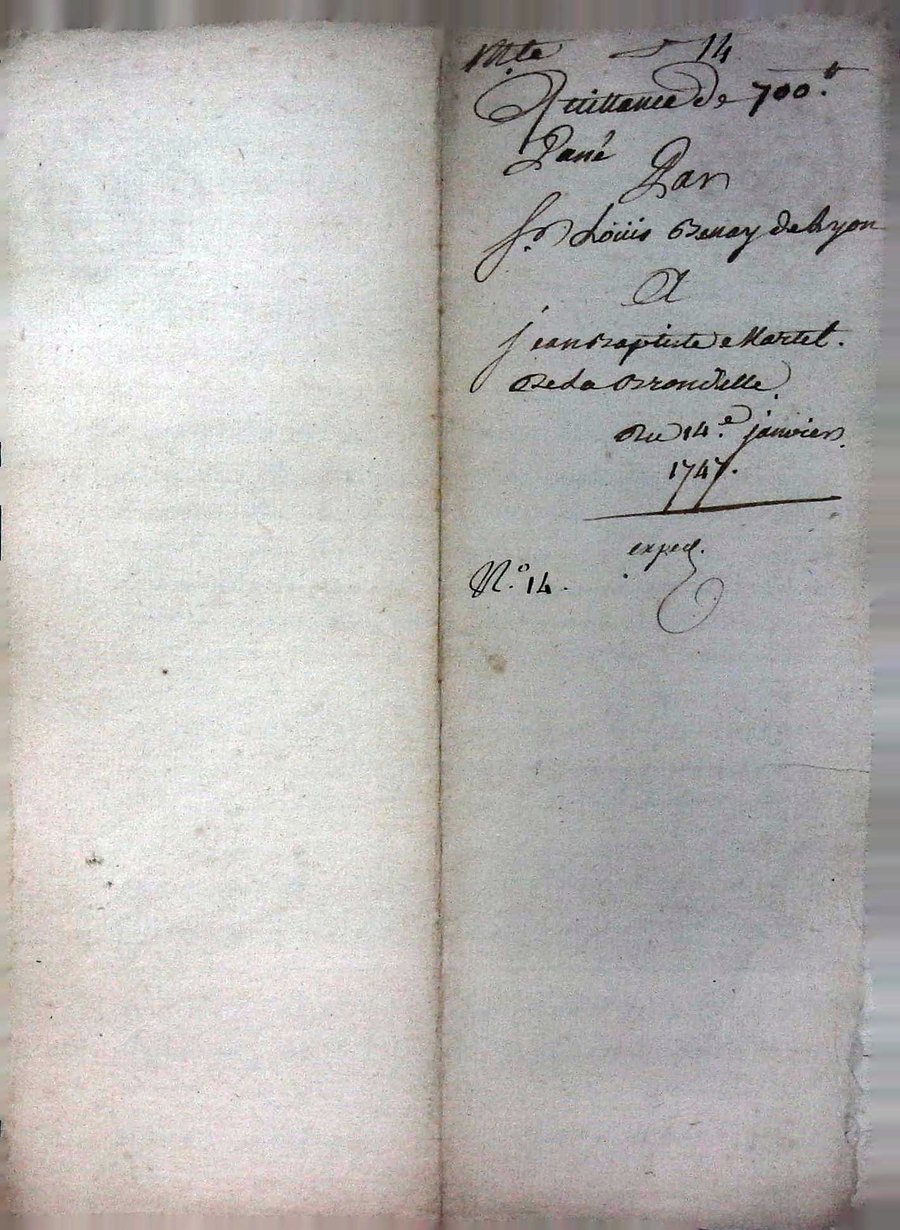 M.te 14
Quittance de 700.#
Passé
Par
Sr. Loüis Benay de Lyon
A
jean Baptiste Martel.
De La Brondelle
Du 14.e janvier
1747.
exped.
N.o 14.